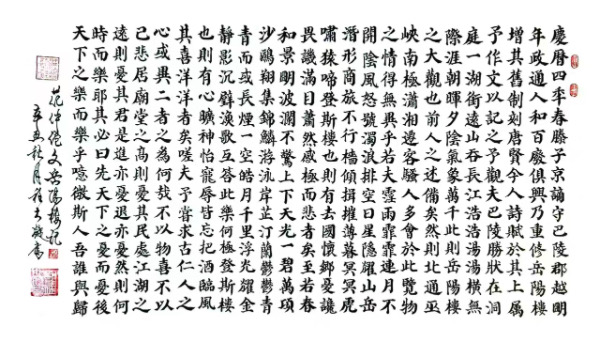 慶曆四季春滕子京謫守巴陵郡越明
年政通人和百廢俱興乃重修岳陽樓
增其舊制刻唐賢今人詩賦於其上屬
予作文以記之予觀夫巴陵勝狀在洞
庭一湖銜遠山吞長江浩浩湯湯橫無
際涯朝暉夕陰氣象萬千此則岳陽樓
之大觀也前人之述備矣然則北通巫
峽南極瀟湘遷客騷人多會於此覽物
之情得無異乎若夫霪雨霏霏連月不
開陰風怒號濁浪排空日星隱耀山岳
潛形商旅不行檣傾楫摧薄暮冥冥虎
嘯猿啼登斯樓也則有去國懷鄉憂讒
畏譏滿目蕭然感極而悲者矣至若春
和景明波瀾不驚上下天光一碧萬頃
沙鷗翔集錦鱗游泳岸芷汀蘭鬱鬱青
青而或長煙一空皓月千里浮光耀金
靜影沉璧漁歌互答此樂何極登斯樓
也則有心曠神怡寵辱皆忘把酒臨風
其喜洋洋者矣嗟夫予嘗求古仁人之
心或異二者之為何哉不以物喜不以
己悲居廟堂之高則憂其民處江湖之
遠則憂其君是進亦憂退亦憂然則何
時而樂耶其必曰先天下之憂而憂後
天下之樂而樂乎噫微斯人吾誰與歸
范仲淹文岳陽樓記
秋月